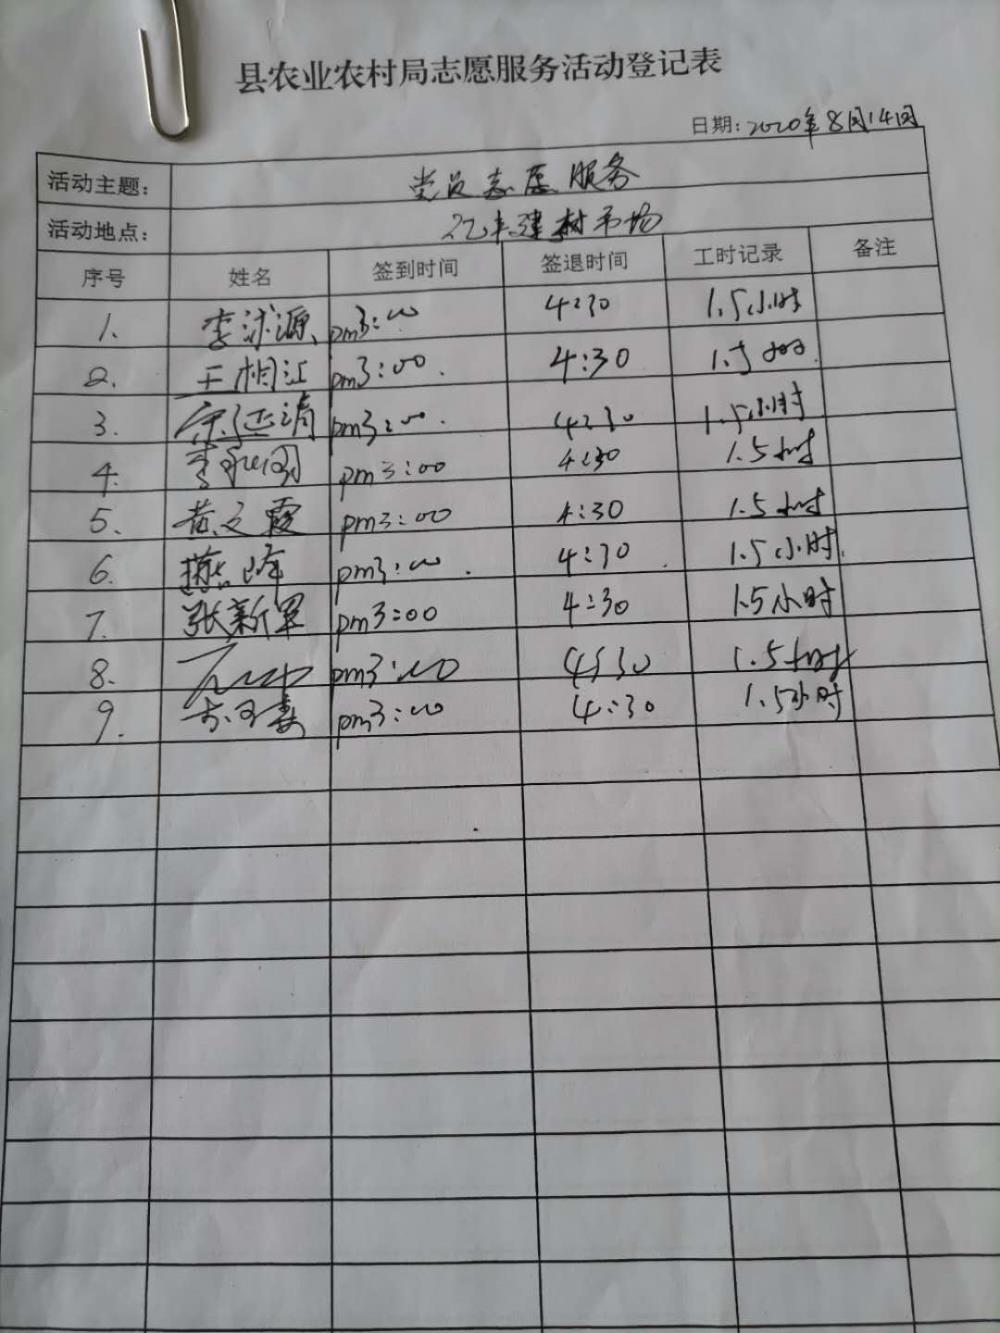 县农业农村局志愿服务活动登记表
日期：2020年8月14日
活动主题： 党员志愿服务
活动地点： 亿丰建材市场
序号 姓名 签到时间 签退时间 工时记录 备注
1. pm3:00 4:30 1.5小时
2. 王相江 pm3:00. 4:30 1.5小时.
3. pm3:00. 4:30 1.5小时
4. pm3:00 4:30 1.5小时
5. 黄文霞 pm3:00 4:30 1.5小时
6. pm3:00. 4:30. 1.5小时.
7. 张新军 pm3:00 4:30 1.5小时
8. pm3:00 4:30 1.5小时
9. pm3:00 4:30 1.5小时